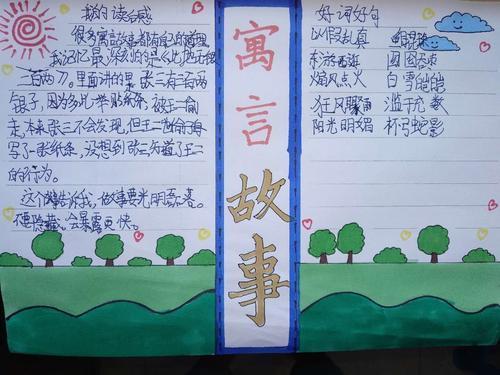 我的读后感
很多寓言故事都有自己的道理
我记忆最深刻的是《此地无银
三百两》。里面讲的是张三有三百两
银子,因为多此一举贴纸条,被王二偷
走,本来张三不会发现,但王二也给
写了一张纸条,没想到张三知道了王二
的行为。
这个故事告诉我,做事要光明磊落。
不要隐藏。会暴露更快。
寓言
故事
好词好句
以假乱真
东游西逛 圆圆
煽风点火 白雪皑皑
狂风骤雨 滥竽充数
阳光明媚 杯弓蛇影